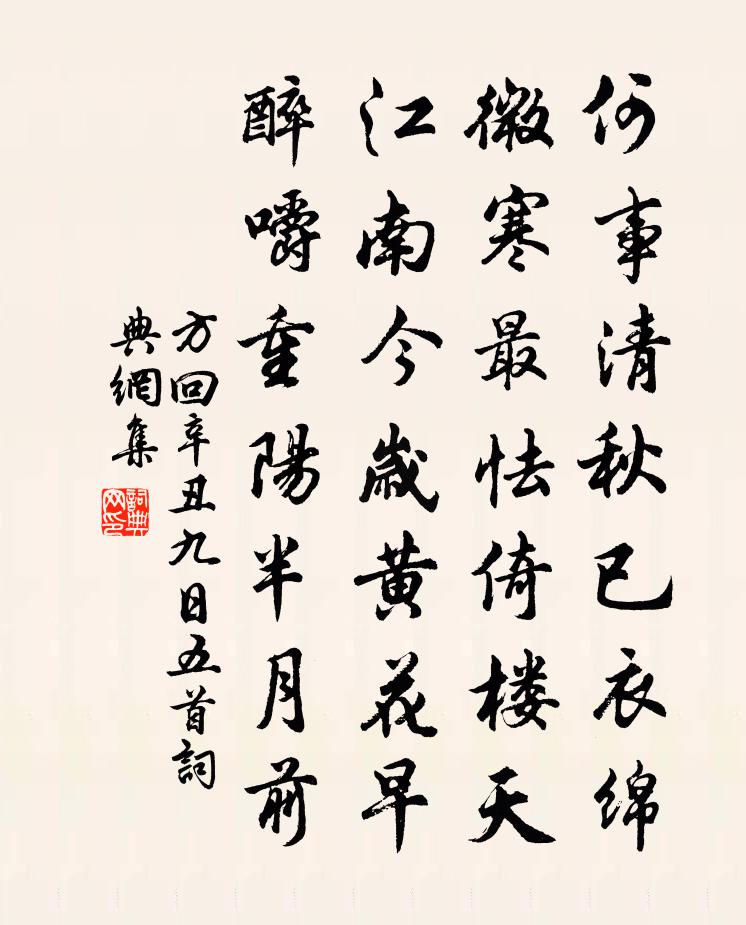 何事清秋已衣绵
微寒最怯倚楼天
江南今歳黄花早
醉嚼重陽半月前
方回辛丑九日五首詞
典網集
詞典
网印